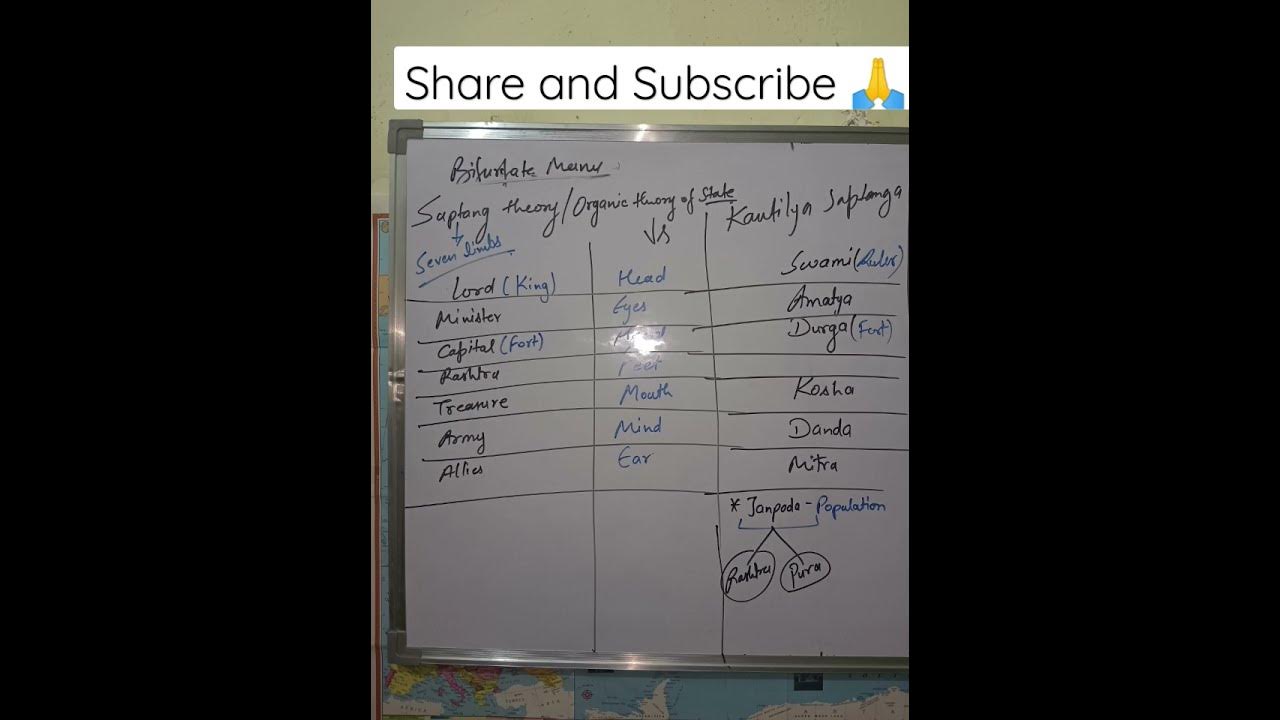 Share and Subscribe 🙏
Bifurtate Manu
Saptang theory/Organic theory of State
Vs
Kautilya Saptanga
Seven limbs
Lord (King) Head Swami (Ruler)
Minister Eyes Amatya
Capital (Fort) Durga (Fort)
Rashtra Feet
Treasure Mouth Kosha
Army Mind Danda
Allies Ear Mitra
* Janpada - Population
Rashtra Pura